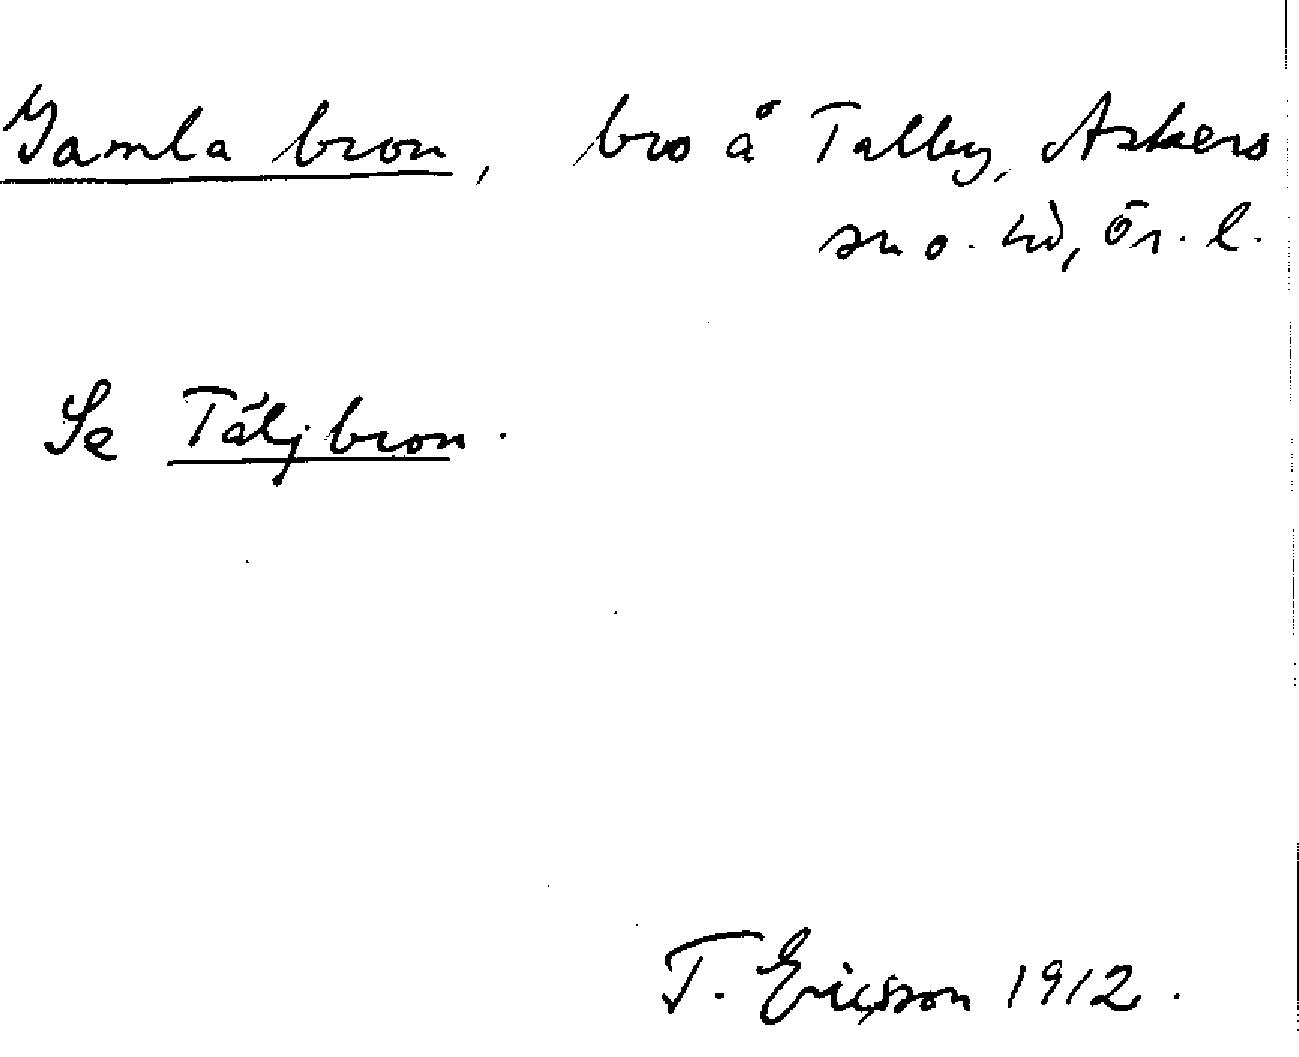 Gamla bron, bro å Talby, Askers
sn o. hd, Ör. l.
Se Täljbron.
T. Ericsson 1912.